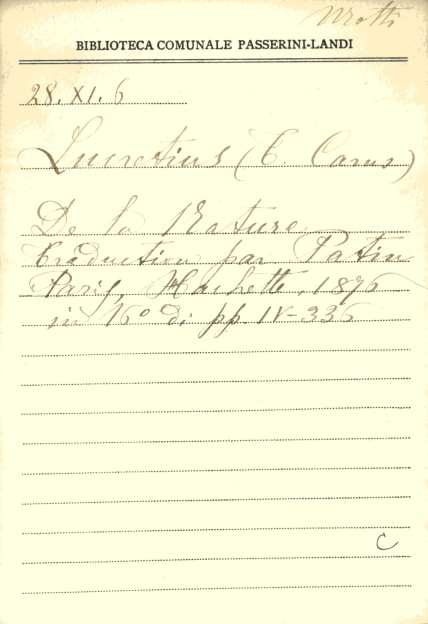 BIBLIOTECA COMUNALE PASSERINI-LANDI
28. XI. 6
Lucretius (T. Carus)
De la Nature
traduction par Patin
Paris, Hachette, 1876
in 16° di pp. IV-336
C